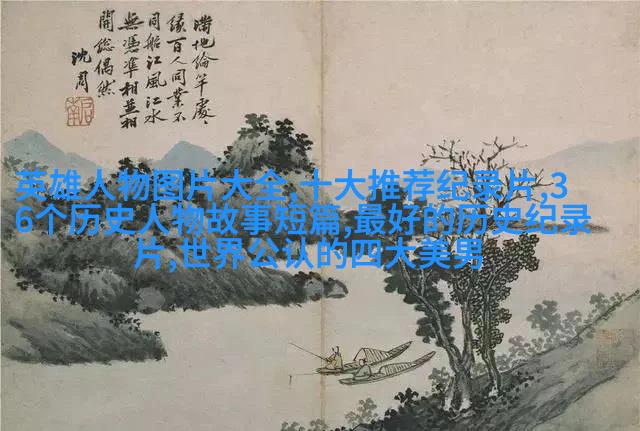 滿地綸竿處〻
緣百人同業不
同船江風江水
無憑準相並相
開總偶然
沈周
英雄人物图片大全,十大推荐纪录片,3
6个历史人物故事短篇,最好的历史纪录
片,世界公认的四大美男